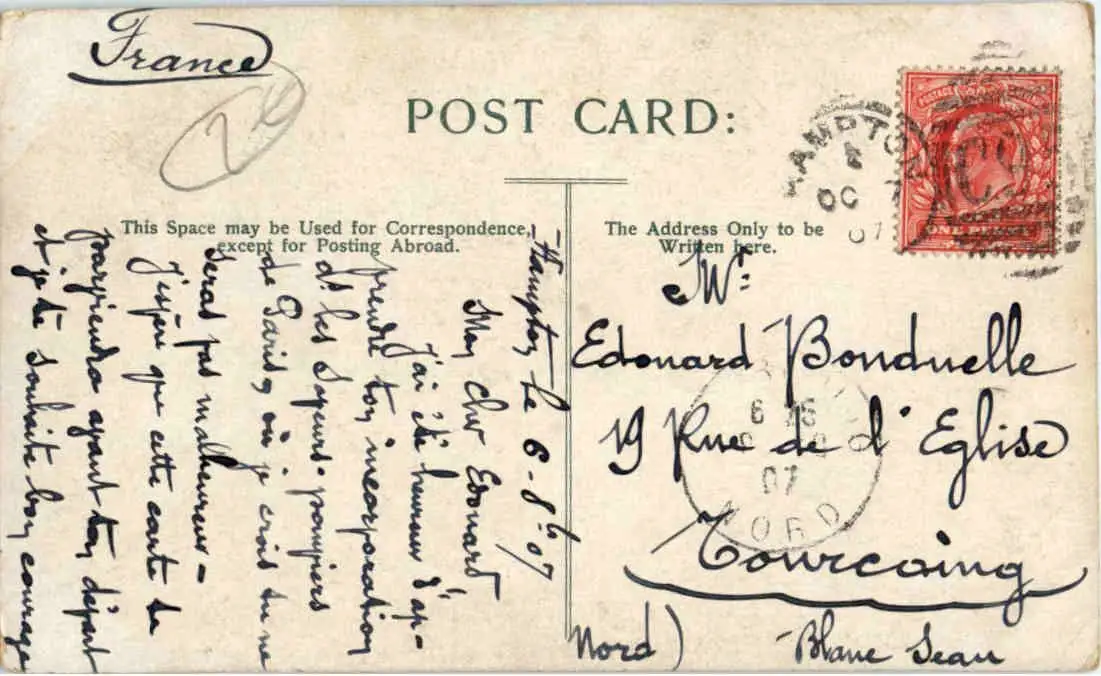 France
26
POST CARD:
HAMPTON
A
OC 7
07
POSTAGE
This Space may be Used for Correspondence,
except for Posting Abroad.
The Address Only to be
Written here.
Hampton le 6-8b 07
Mon cher Edouard,
J'ai été heureux d'ap-
prendre ton incorporation
ds les Sapeurs-pompiers
de Paris, où je crois tu ne
seras pas malheureux-
J'espère que cette carte te
parviendra avant ton départ
et je te souhaite bon courage
Mr
Edouard Bonduelle
19 Rue de l'Eglise
Tourcoing
Nord)
Blanc Jean
6
07
NORD